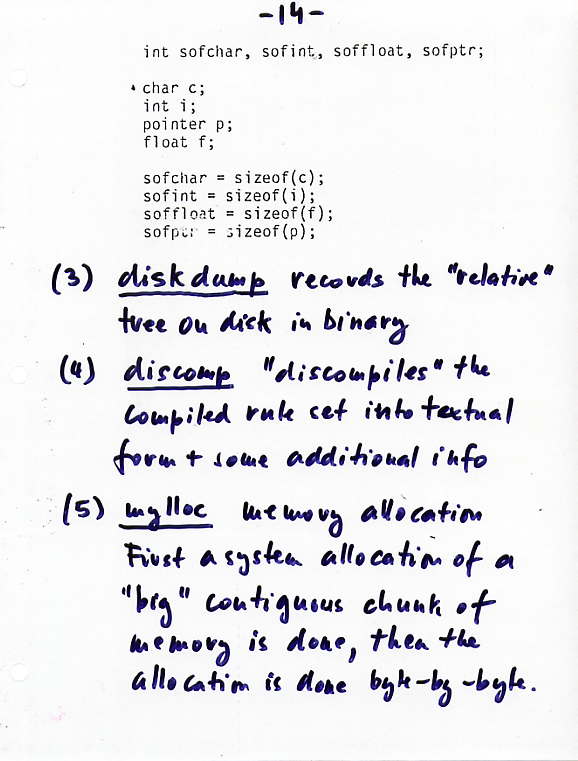 -14-
int sofchar, sofint, soffloat, sofptr;
char c;
int i;
pointer p;
float f;
sofchar = sizeof(c);
sofint = sizeof(i);
soffloat = sizeof(f);
sofptr = sizeof(p);
(3) diskdump records the "relative"
tree on disk in binary
(4) discomp "discompiles" the
compiled rule set into textual
form + some additional info
(5) mylloc memory allocation
First a system allocation of a
"big" contiguous chunk of
memory is done, then the
allocation is done byte-by-byte.